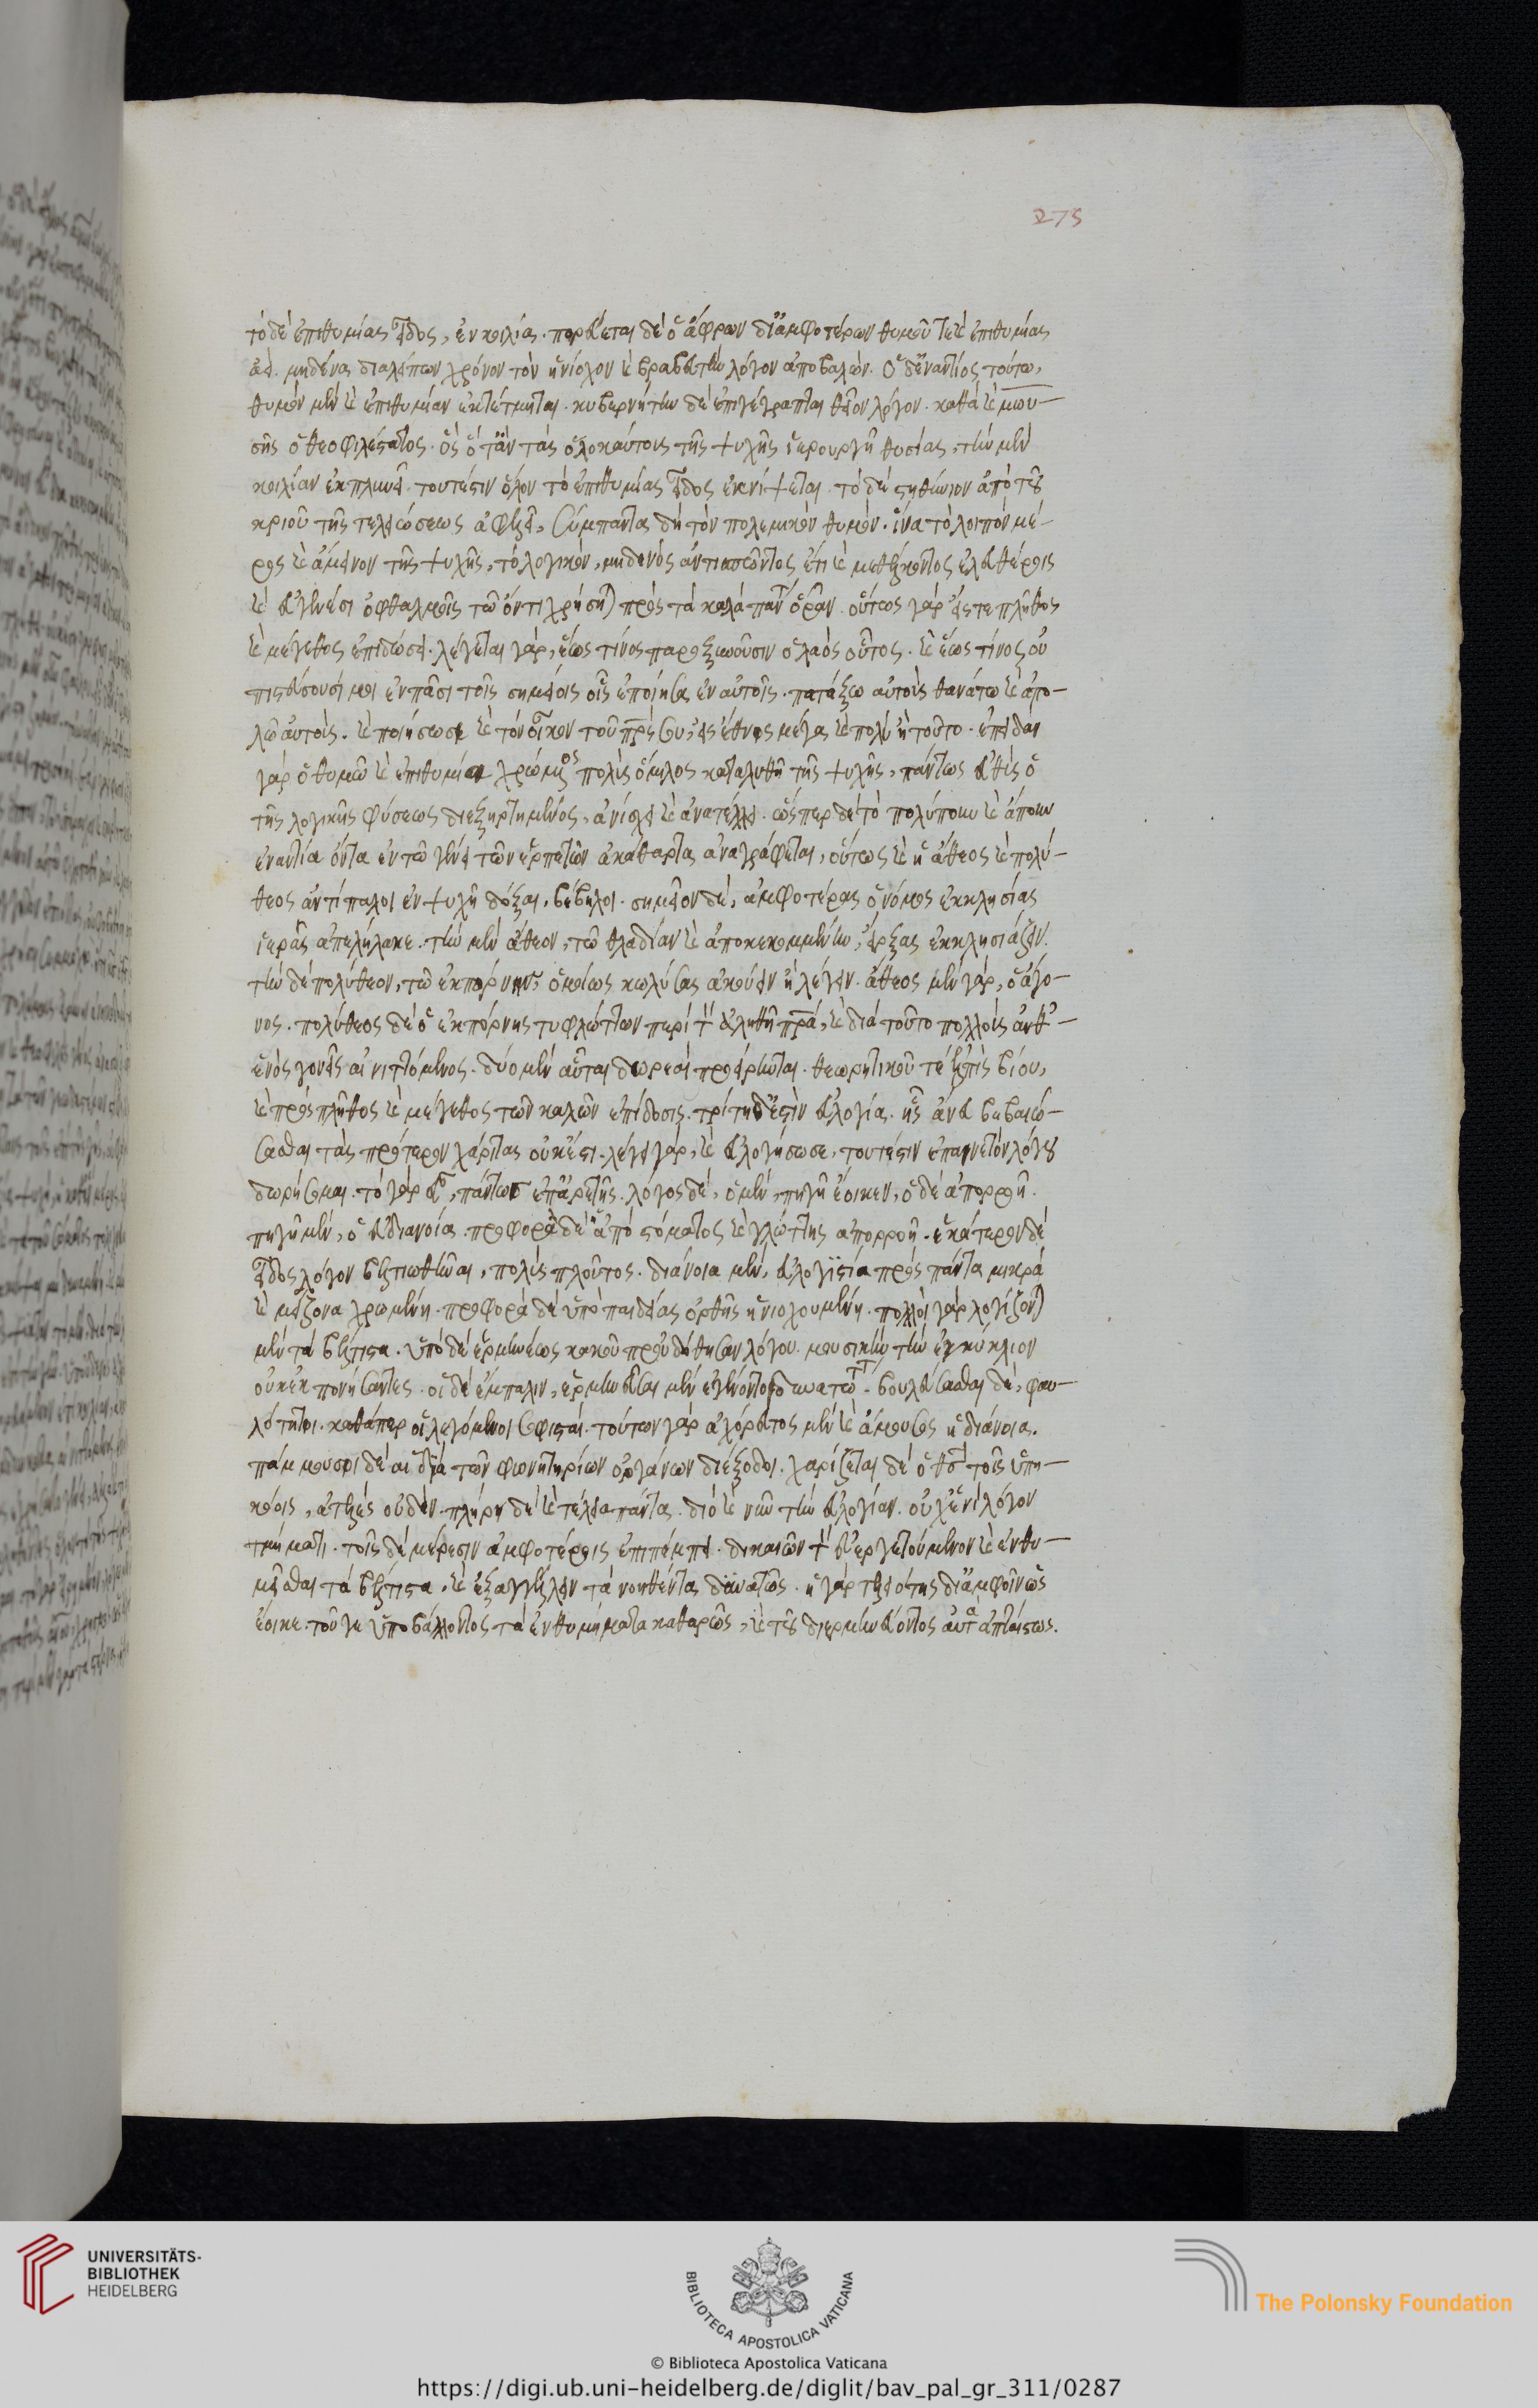 275
τὸ δὲ ἐπιθυμίας εἶδος, ἐν κοιλία. πορεύεται δὲ ὁ ἄφρων δι' ἀμφοτέρων θυμοῦ τε καὶ ἐπιθυμίας
ἀεὶ. μηδένα διαλείπων χρόνον τὸν ἡνίοχον καὶ βραβευτὴν λόγον ἀποβαλών. ὁ δ' ἐναντίος τούτω,
θυμὸν μὲν καὶ ἐπιθυμίαν ἐκτέτμηται. κυβερνήτην δὲ ἐπιγέγραπται θεῖον λόγον. καθὰ καὶ μωυ-
σῆς ὁ θεοφιλέστατος. ὃς ὅταν τὰς ὁλοκαύτους τῆς ψυχῆς ἱερουργῆ θυσίας, τὴν μὲν
κοιλίαν ἐκπλυνεῖ. τουτέστιν ὅλον τὸ ἐπιθυμίας εἶδος ἐκνίψεται. τὸ δὲ στηθύνιον ἀπὸ τοῦ
κριοῦ τῆς τελειώσεως ἀφελεῖ, σύμπαντα δὴ τὸν πολεμικὸν θυμόν. ἵνα τὸ λοιπὸν μέ-
ρος καὶ ἄμεινον τῆς ψυχῆς, τὸ λογικὸν, μηδενὸς ἀντισπῶντος ἔτι καὶ μεθέλκοντος ἐλευθέροις
καὶ εὐγενέσι ὀφθαλμοῖς τῶ ὄντι χρήσηται πρὸς τὰ καλὰ πάντα ὁρᾶν. οὕτως γὰρ εἴς τε πλῆθος
καὶ μέγεθος ἐπιδώσει. λέγεται γὰρ, ἕως τίνος παροξυνοῦσιν ὁ λαὸς οὗτος. καὶ ἕως τίνος οὐ
πιστεύσουσί μοι ἐν πᾶσι τοῖς σημείοις οἷς ἐποίησα ἐν αὐτοῖς. πατάξω αὐτοὺς θανάτω καὶ ἀπο-
λῶ αὐτούς. καὶ ποιήσω σε καὶ τὸν οἶκον τοῦ πρς σου, εἰς ἔθνος μέγα καὶ πολὺ ἢ τοῦτο. ἐπειδὰν
γὰρ ὁ θυμῶ καὶ ἐπιθυμία χρώμενος πολὺς ὅμιλος καταλυθῆ τῆς ψυχῆς, πάντως εὐθὺς ὁ
τῆς λογικῆς φύσεως διεξηρτημένος, ἀνίσχει καὶ ἀνατέλλει. ὥσπερ δὲ τὸ πολύπουν καὶ ἄπουν
ἐναντία ὄντα ἐν τῶ γένει τῶν ἑρπετῶν ἀκάθαρτα ἀναγράφεται, οὕτως καὶ ἡ ἄθεος καὶ πολύ-
θεος ἀντίπαλοι ἐν ψυχῆ δόξαι, βέβηλοι. σημεῖον δὲ, ἀμφοτέρας ὁ νόμος ἐκκλησίας
ἱερᾶς ἀπελήλακε. τὴν μὲν ἄθεον, τῶ θλαδίαν καὶ ἀποκεκομμένον, εἴρξας ἐκκλησιάζειν.
τὴν δὲ πολύθεον, τῶ ἐκ πόρνης, ὁμοίως κωλύσας ἀκούειν ἢ λέγειν. ἄθεος μὲν γὰρ, ὁ ἄγο-
νος. πολύθεος δὲ ὁ ἐκ πόρνης τυφλώττων περὶ τὸν ἀληθῆ πρα, καὶ διὰ τοῦτο πολλοὺς ἀνθ'
ἑνὸς γονεῖς αἰνιττόμενος. δύο μὲν αὗται δωρεαὶ προείρηνται. θεωρητικοῦ τε ἐλπὶς βίου,
καὶ πρὸς πλῆθος καὶ μέγεθος τῶν καλῶν ἐπίδοσις. τρίτη δ' ἐστὶν εὐλογία. ἧς ἄνευ βεβαιώ-
σασθαι τὰς προτέρας χάριτας οὐκ ἔστι. λέγει γὰρ, καὶ εὐλογήσω σε, τουτέστιν ἐπαινετὸν λόγον
δωρήσομαι. τὸ γὰρ εὖ, πάντως ἐπ' ἀρετῆς. λόγος δὲ, ὁ μὲν, πηγῆ ἔοικεν, ὁ δὲ ἀπορροῆ.
πηγῆ μὲν, ὁ ἐν διανοία. προφορὰ δὲ ἡ ἀπὸ στόματος καὶ γλώττης ἀπορροῆ. ἑκάτερον δὲ
εἶδος λόγου βελτιωθῆναι, πολὺς πλοῦτος. διάνοια μὲν, εὐλογιστία πρὸς πάντα μικρὰ
καὶ μείζονα χρωμένη. προφορὰ δὲ ὑπὸ παιδείας ὀρθῆς ἡνιοχουμένη. πολλοὶ γὰρ λογίζονται
μὲν τὰ βέλτιστα. ὑπὸ δὲ ἑρμηνέως κακοῦ προυδόθησαν λόγου. μουσικὴν τὴν ἐγκύκλιον
οὐκ ἐκπονήσαντες. οἱ δὲ ἔμπαλιν, ἑρμηνεῦσαι μὲν ἐγένοντο δυνατώτατοι. βουλεύσασθαι δὲ, φαυ-
λότατοι. καθάπερ οἱ λεγόμενοι σοφισταί. τούτων γὰρ ἀχόρευτος μὲν καὶ ἄμουσος ἡ διάνοια.
πάμμουσοι δὲ αἱ διὰ τῶν φωνητηρίων ὀργάνων διέξοδοι. χαρίζεται δὲ ὁ θς τοῖς ὑπη-
κόοις, ἀτελὲς οὐδέν. πλήρη δὲ καὶ τέλεια πάντα. διὸ καὶ νῦν τὴν εὐλογίαν. οὐχ ἑνὶ λόγου
τμήματι. τοῖς δὲ μέρεσιν ἀμφοτέροις ἐπιπέμπει. δικαιῶν τὸν εὐεργετούμενον καὶ ἐνθυ-
μεῖσθαι τὰ βέλτιστα, καὶ ἐξαγγέλλειν τὰ νοηθέντα δυνατῶς. ἡ γὰρ τελειότης δι' ἀμφοῖν ὡς
ἔοικε. τοῦ γε ὑποβάλλοντος τὰ ἐνθυμήματα καθαρῶς, καὶ τοῦ διερμηνεύοντος αὐτὰ ἀπταίστως.
UNIVERSITÄTS-
BIBLIOTHEK
HEIDELBERG
BIBLIOTECA APOSTOLICA VATICANA
The Polonsky Foundation
© Biblioteca Apostolica Vaticana
https://digi.ub.uni-heidelberg.de/diglit/bav_pal_gr_311/0287